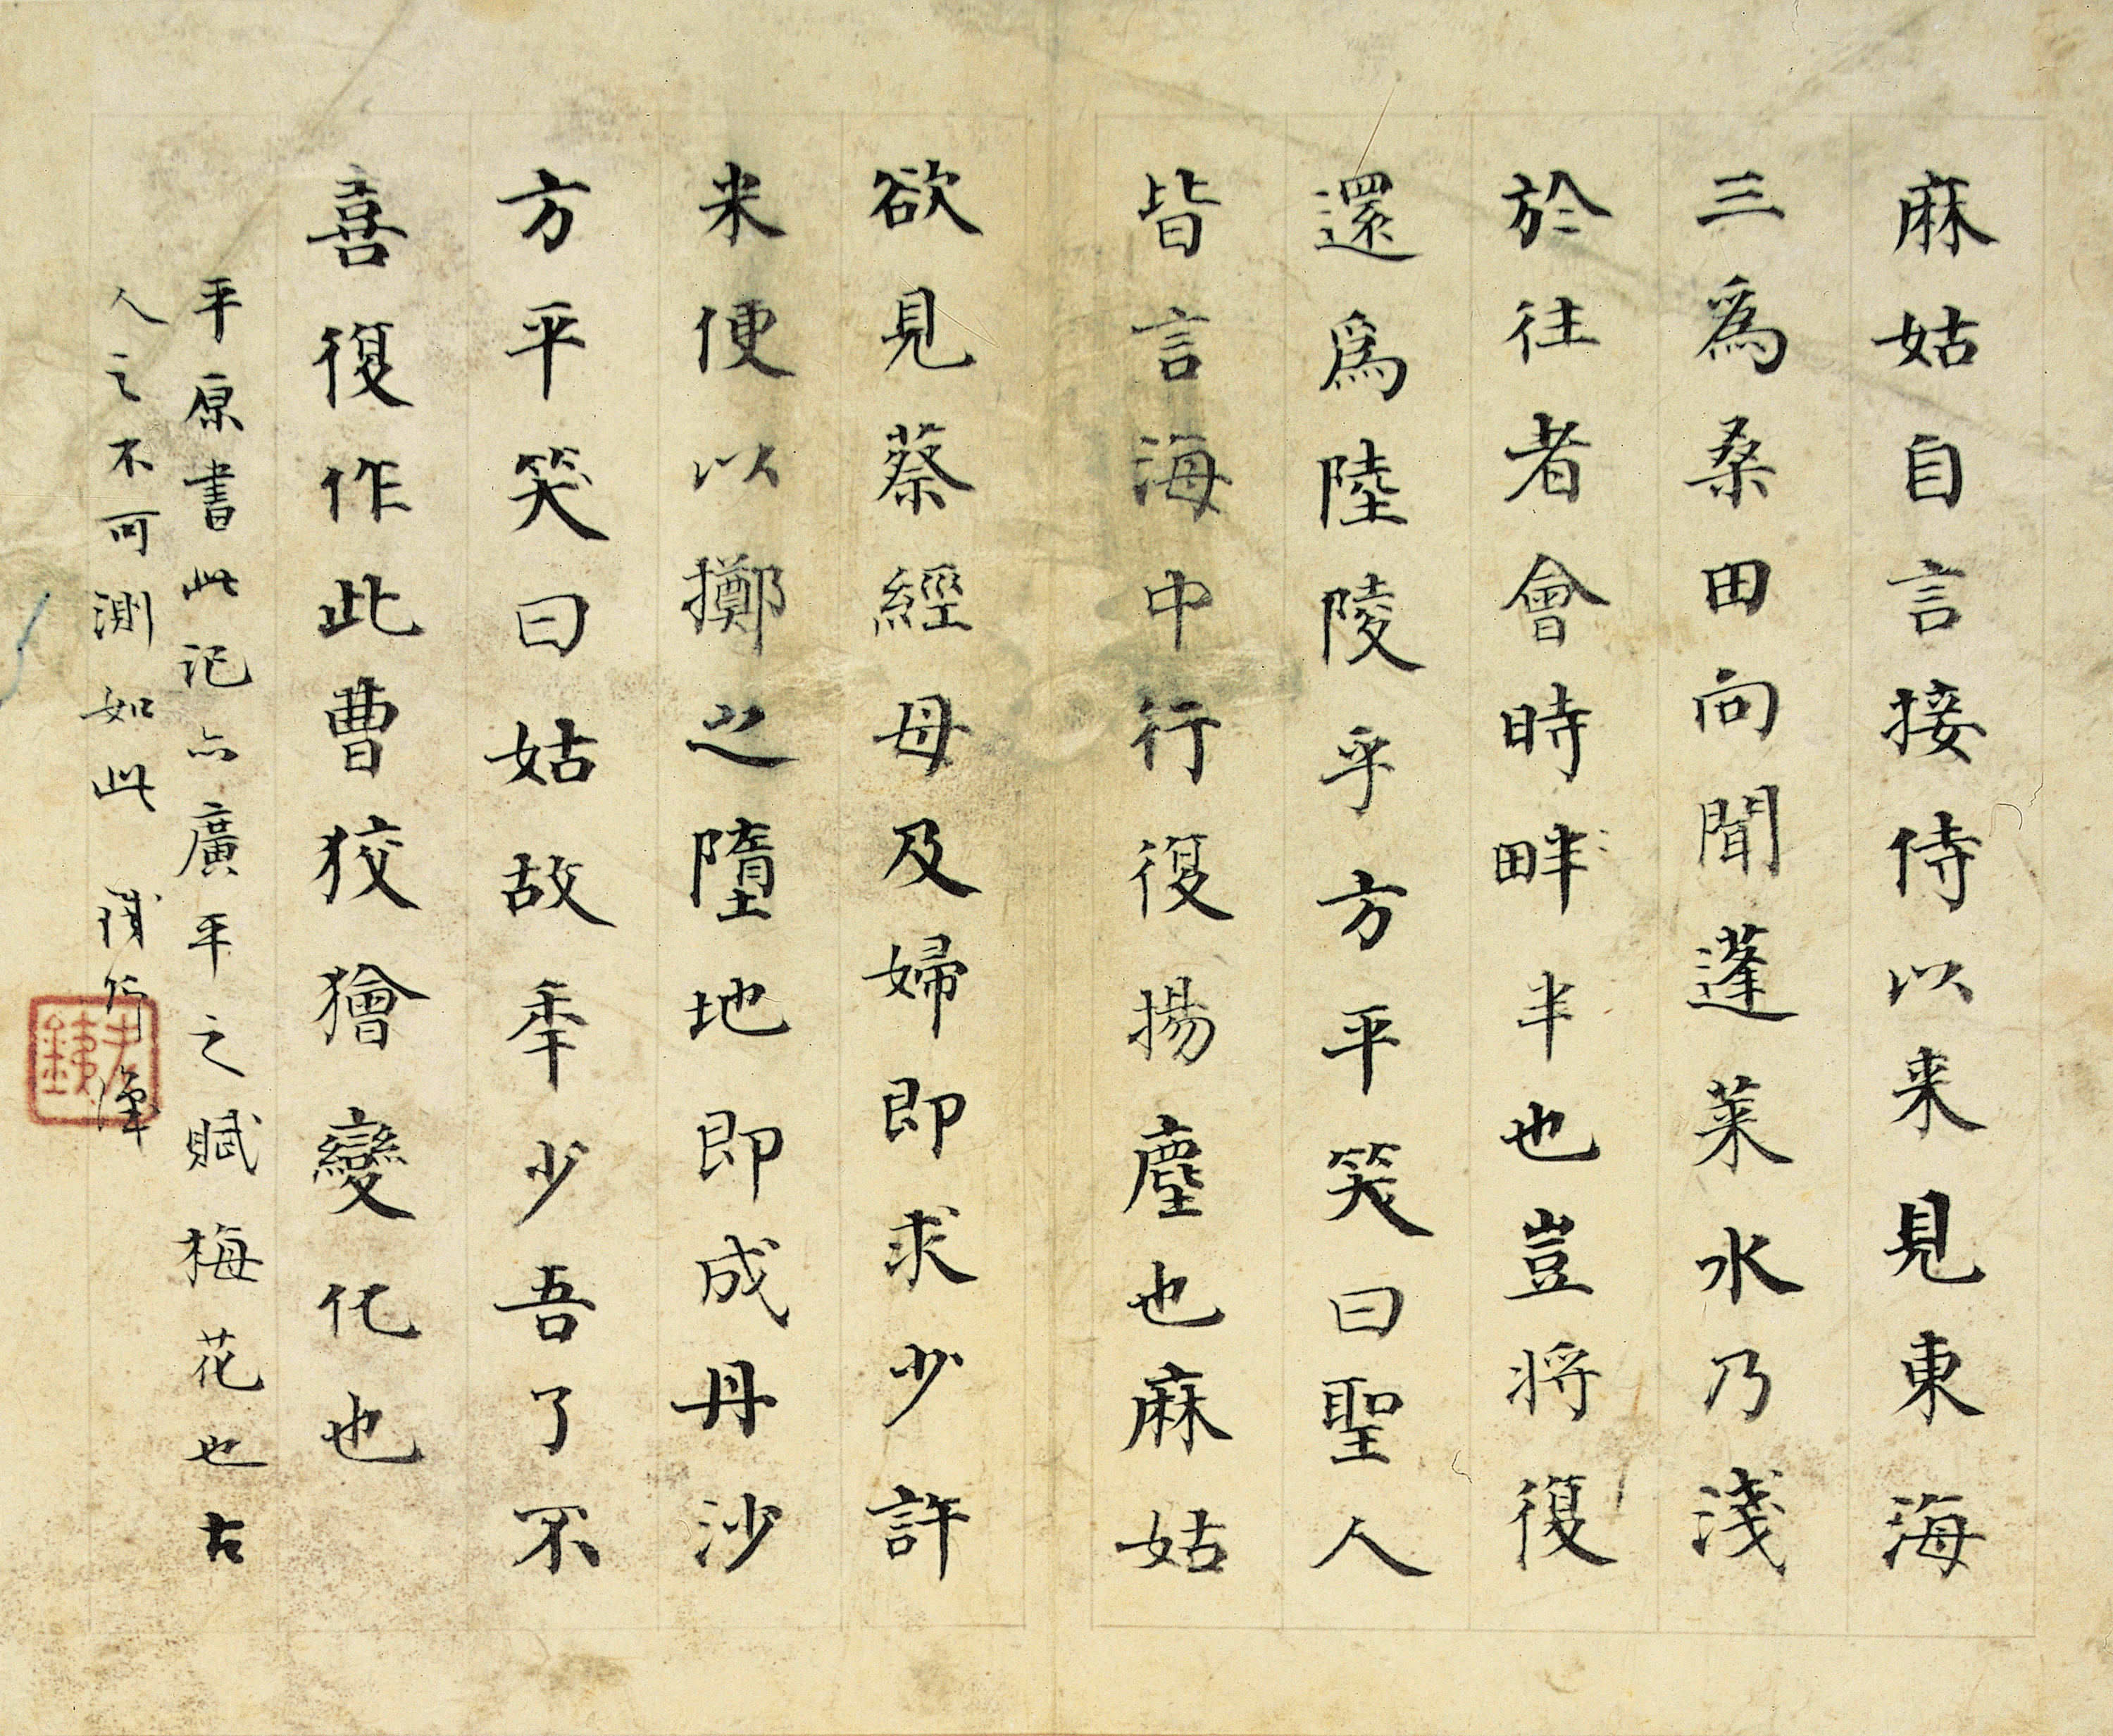 麻姑自言接侍以来見東海
三爲桑田向聞蓬莱水乃淺
於往者會時畔半也豈将復
還爲陸陵乎方平笑曰聖人
皆言海中行復揚塵也麻姑
欲見蔡經母及婦即求少許
米便以擲之墮地即成丹沙
方平笑曰姑故秊少吾了不
喜復作此曹狡獪變化也
平原書此記亦廣平之賦梅花也古
人之不可測如此